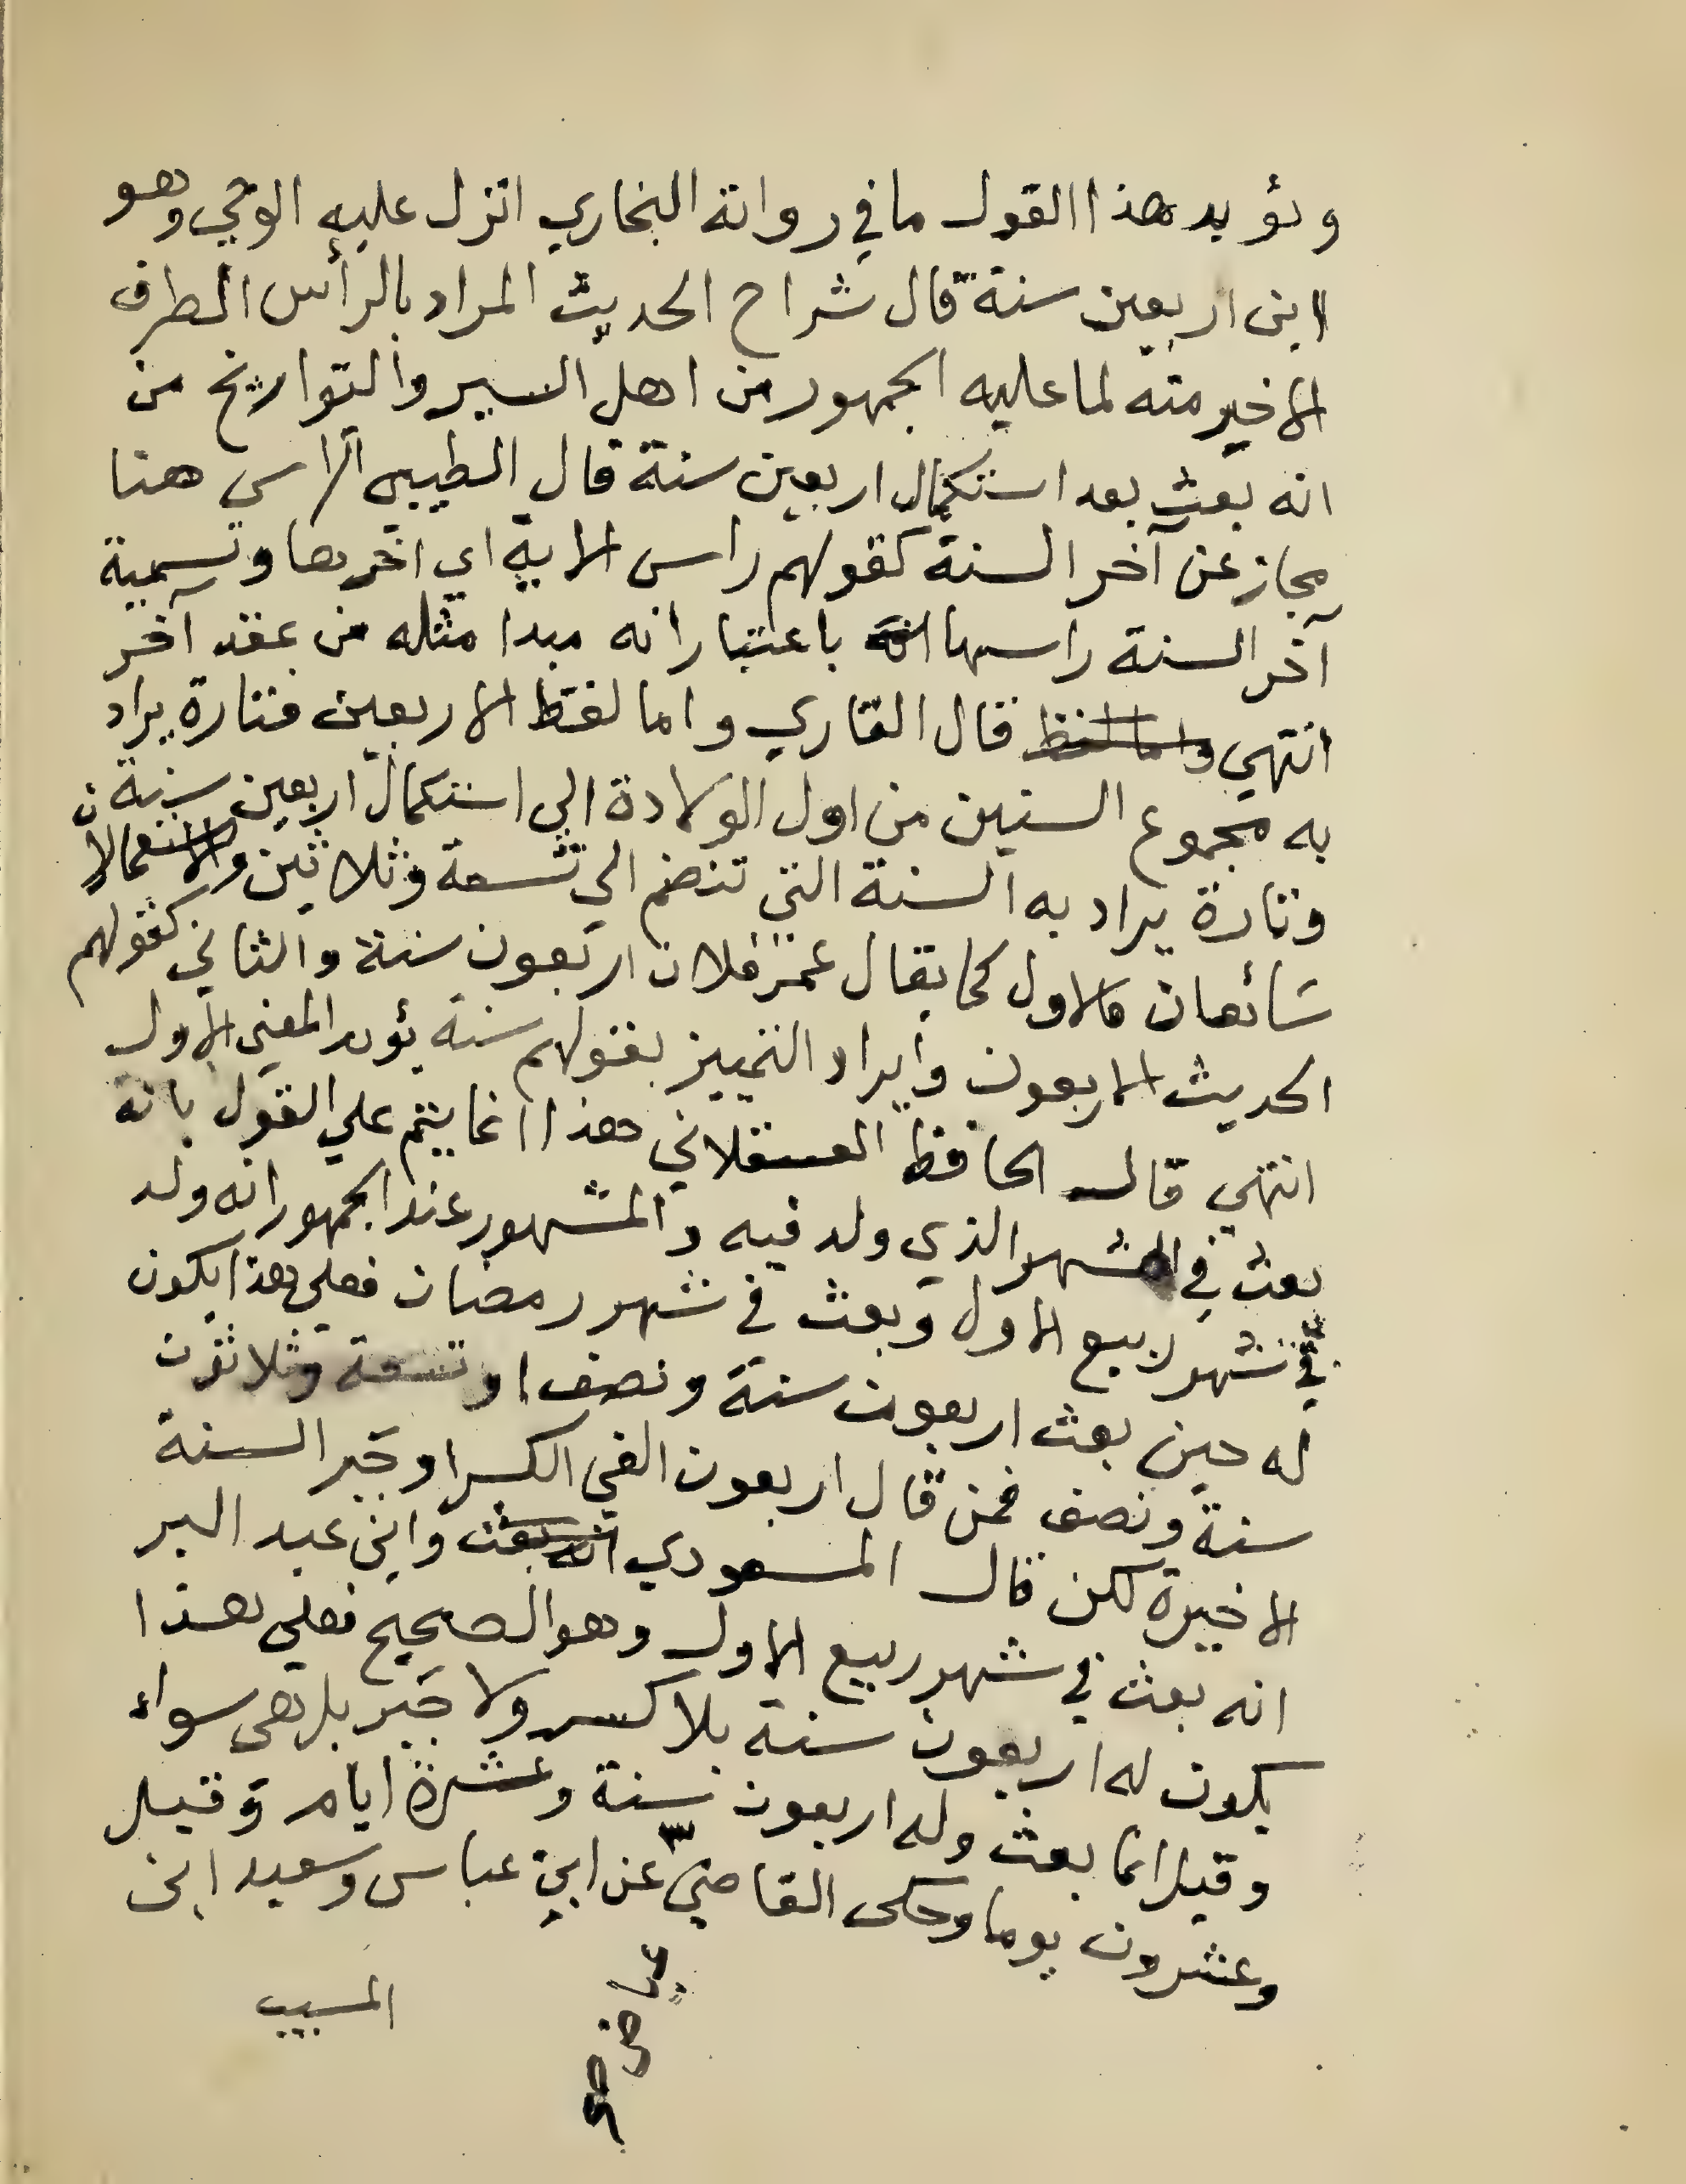 ويؤيد هذا القول ما في رواية البخاري انزل عليه الوحي وهو
ابن اربعين سنة قال شراح الحديث المراد بالرأس الطرف
الاخير منه لما عليه الجمهور من اهل السير والتواريخ من
انه بعث بعد استكمال اربعين سنة قال الطيبي الراس هنا
مجاز عن آخر السنة كقولهم راس الاية اي اخرها وتسمية
آخر السنة راسها باعتبار انه مبدا مثله من عقد آخر
انتهي واما لفظ قال القاري واما لفظ الاربعين فتارة يراد
به مجموع السنين من اول الولادة الي استكمال اربعين سنة
وتارة يراد به السنة التي تنضم الي تسعة وثلاثين والاستعمالان
شائعان فالاول كما يقال عمر فلان اربعون سنة والثاني كقولهم
الحديث الاربعون وايراد التمييز بقولهم سنة يؤيد المعني الاول
انتهي قال الحافظ العسقلاني هذا انما يتم علي القول بانه
بعث في الشهر الذي ولد فيه والمشهور عند الجمهور انه ولد
في شهر ربيع الاول وبعث في شهر رمضان فعلي هذا يكون
له حين بعث اربعون سنة ونصف او تسعة وثلاثون
سنة ونصف فمن قال اربعون الغي الكسر او جبر السنة
الاخيرة لكن قال المسعودي انه بعث وابن عبد البر
انه بعث في شهر ربيع الاول وهو الصحيح فعلي هذا
يكون له اربعون سنة بلا كسر ولا جبر بل هي سواء
وقيل انما بعث وله اربعون سنة وعشرة ايام وقيل
وعشرون يوما وحكى القاضي عن ابن عباس وسعيد ابن
عياض صح
المسيب